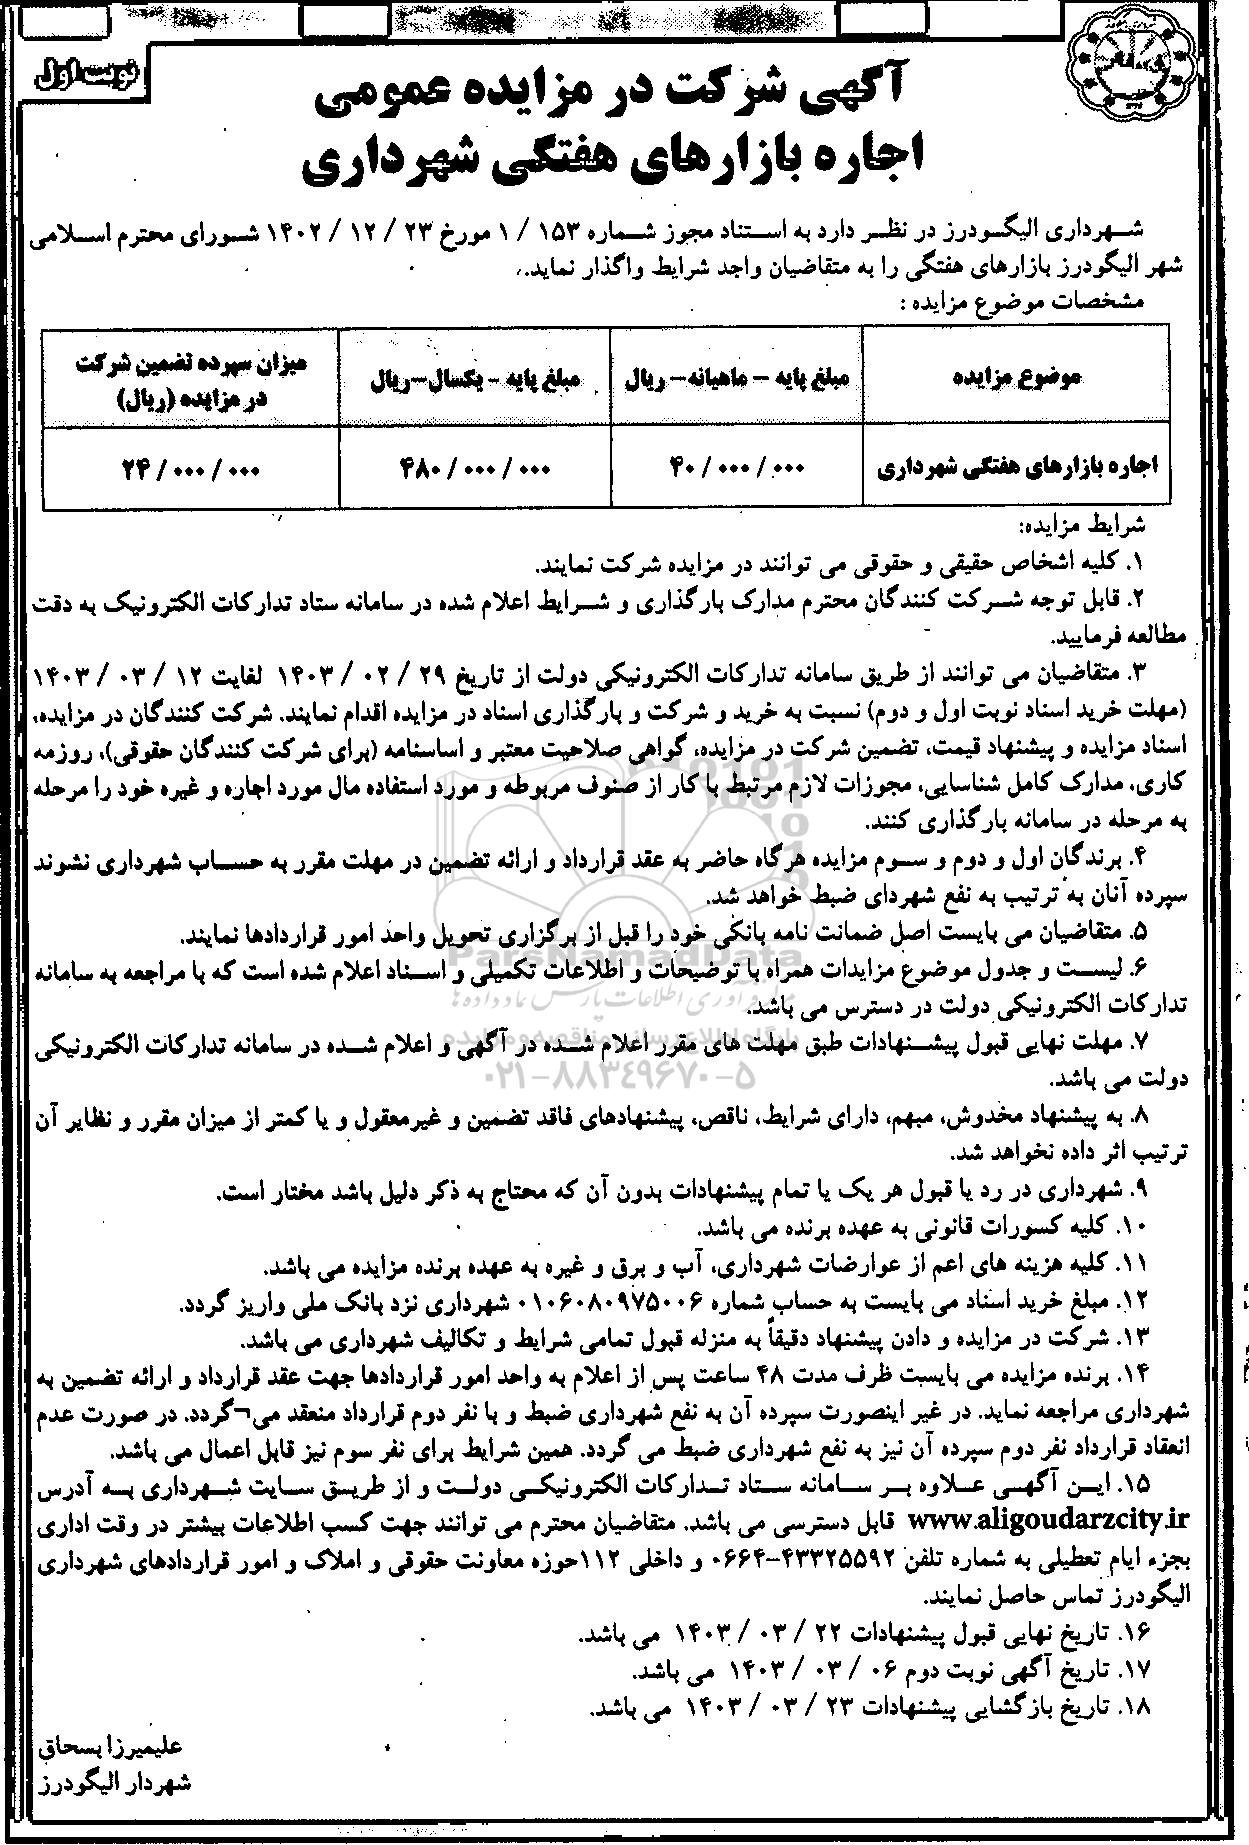 نوبت اول
آگهی شرکت در مزایده عمومی
اجاره بازارهای هفتگی شهرداری
شهرداری الیگودرز در نظر دارد به استناد مجوز شماره ۱۵۳ / ۱ مورخ ۲۳ / ۱۲ / ۱۴۰۲ شورای محترم اسلامی
شهر الیگودرز بازارهای هفتگی را به متقاضیان واجد شرایط واگذار نماید.
مشخصات موضوع مزایده :
موضوع مزایده | مبلغ پایه – ماهیانه– ریال | مبلغ پایه - یکسال–ریال | میزان سپرده تضمین شرکت در مزایده (ریال)
اجاره بازارهای هفتگی شهرداری | ۴۰/۰۰۰/۰۰۰ | ۴۸۰/۰۰۰/۰۰۰ | ۲۴/۰۰۰/۰۰۰
شرایط مزایده:
۱. کلیه اشخاص حقیقی و حقوقی می توانند در مزایده شرکت نمایند.
۲. قابل توجه شرکت کنندگان محترم مدارک بارگذاری و شرایط اعلام شده در سامانه ستاد تدارکات الکترونیک به دقت
مطالعه فرمایید.
۳. متقاضیان می توانند از طریق سامانه تدارکات الکترونیکی دولت از تاریخ ۲۹ / ۰۲ / ۱۴۰۳ لغایت ۱۲ / ۰۳ / ۱۴۰۳
(مهلت خرید اسناد نوبت اول و دوم) نسبت به خرید و شرکت و بارگذاری اسناد در مزایده اقدام نمایند. شرکت کنندگان در مزایده،
اسناد مزایده و پیشنهاد قیمت، تضمین شرکت در مزایده، گواهی صلاحیت معتبر و اساسنامه (برای شرکت کنندگان حقوقی)، روزمه
کاری، مدارک کامل شناسایی، مجوزات لازم مرتبط با کار از صنوف مربوطه و مورد استفاده مال مورد اجاره و غیره خود را مرحله
به مرحله در سامانه بارگذاری کنند.
۴. برندگان اول و دوم و سوم مزایده هرگاه حاضر به عقد قرارداد و ارائه تضمین در مهلت مقرر به حساب شهرداری نشوند
سپرده آنان به ترتیب به نفع شهردای ضبط خواهد شد.
۵. متقاضیان می بایست اصل ضمانت نامه بانکی خود را قبل از برگزاری تحویل واحد امور قراردادها نمایند.
۶. لیست و جدول موضوع مزایدات همراه با توضیحات و اطلاعات تکمیلی و اسناد اعلام شده است که با مراجعه به سامانه
تدارکات الکترونیکی دولت در دسترس می باشد.
۷. مهلت نهایی قبول پیشنهادات طبق مهلت های مقرر اعلام شده در آگهی و اعلام شده در سامانه تدارکات الکترونیکی
دولت می باشد.
۸. به پیشنهاد مخدوش، مبهم، دارای شرایط، ناقص، پیشنهادهای فاقد تضمین و غیرمعقول و یا کمتر از میزان مقرر و نظایر آن
ترتیب اثر داده نخواهد شد.
۹. شهرداری در رد یا قبول هر یک یا تمام پیشنهادات بدون آن که محتاج به ذکر دلیل باشد مختار است.
۱۰. کلیه کسورات قانونی به عهده برنده می باشد.
۱۱. کلیه هزینه های اعم از عوارضات شهرداری، آب و برق و غیره به عهده برنده مزایده می باشد.
۱۲. مبلغ خرید اسناد می بایست به حساب شماره ۰۱۰۶۰۸۰۹۷۵۰۰۶ شهرداری نزد بانک ملی واریز گردد.
۱۳. شرکت در مزایده و دادن پیشنهاد دقیقاً به منزله قبول تمامی شرایط و تکالیف شهرداری می باشد.
۱۴. برنده مزایده می بایست ظرف مدت ۴۸ ساعت پس از اعلام به واحد امور قراردادها جهت عقد قرارداد و ارائه تضمین به
شهرداری مراجعه نماید. در غیر اینصورت سپرده آن به نفع شهرداری ضبط و با نفر دوم قرارداد منعقد می¬گردد. در صورت عدم
انعقاد قرارداد نفر دوم سپرده آن نیز به نفع شهرداری ضبط می گردد. همین شرایط برای نفر سوم نیز قابل اعمال می باشد.
۱۵. این آگهی علاوه بر سامانه ستاد تدارکات الکترونیکی دولت و از طریق سایت شهرداری به آدرس
www.aligoudarzcity.ir قابل دسترسی می باشد. متقاضیان محترم می توانند جهت کسب اطلاعات بیشتر در وقت اداری
بجزء ایام تعطیلی به شماره تلفن ۴۳۳۲۵۵۹۲–۰۶۶۴ و داخلی ۱۱۲حوزه معاونت حقوقی و املاک و امور قراردادهای شهرداری
الیگودرز تماس حاصل نمایند.
۱۶. تاریخ نهایی قبول پیشنهادات ۲۲ / ۰۳ / ۱۴۰۳ می باشد.
۱۷. تاریخ آگهی نوبت دوم ۰۶ / ۰۳ / ۱۴۰۳ می باشد.
۱۸. تاریخ بازگشایی پیشنهادات ۲۳ / ۰۳ / ۱۴۰۳ می باشد.
علیمیرزا بسحاق
شهردار الیگودرز
ParsNamadData
۰۲۱–۸۸۳۴۹۶۷۰–۵